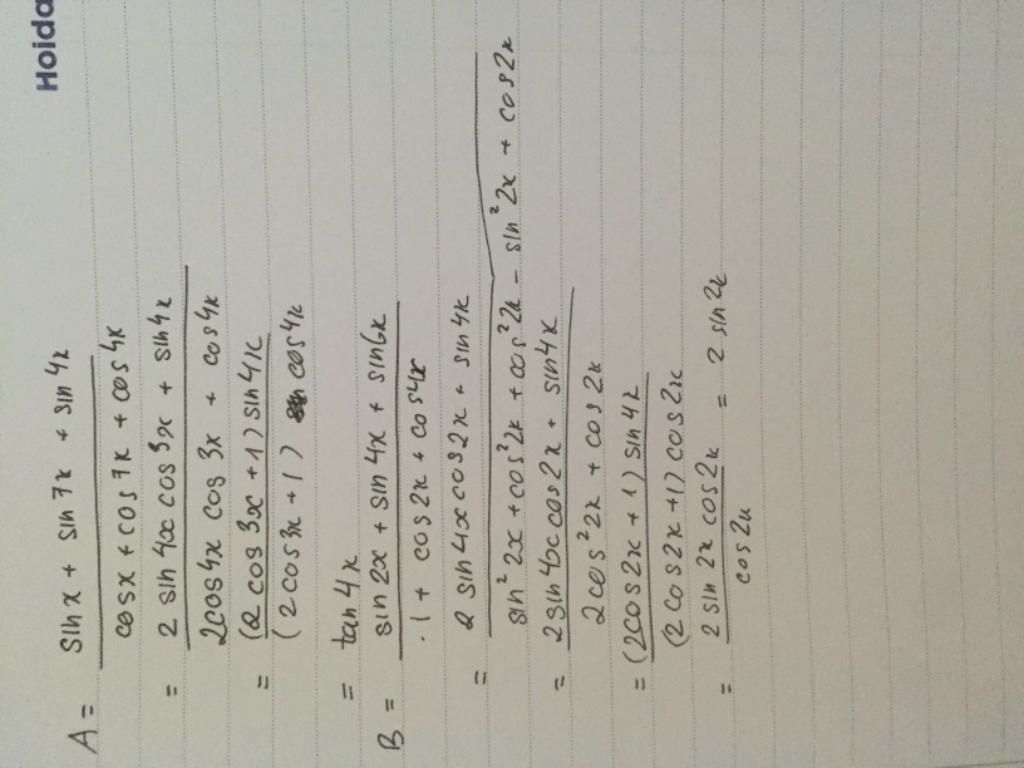 Hoida
A = sin x + sin 7x + sin 4x
cosx + cos 7x + cos 4x
= 2 sin 4x cos 3x + sin 4x
2cos4x cos 3x + cos 4x
= (2 cos 3x + 1) sin 4x
(2 cos3x + 1) cos 4x
= tan 4x
B = sin 2x + sin 4x + sin6x
1 + cos 2x + cos 4x
= 2 sin 4x cos 2x + sin 4x
sin² 2x + cos² 2x + cos² 2x - sin² 2x + cos 2x
= 2 sin 4x cos 2x + sin 4x
2 cos² 2x + cos 2x
= (2cos 2x + 1) sin 4x
(2 cos 2x + 1) cos 2x
= 2 sin 2x cos 2x = 2 sin 2x
cos 2x